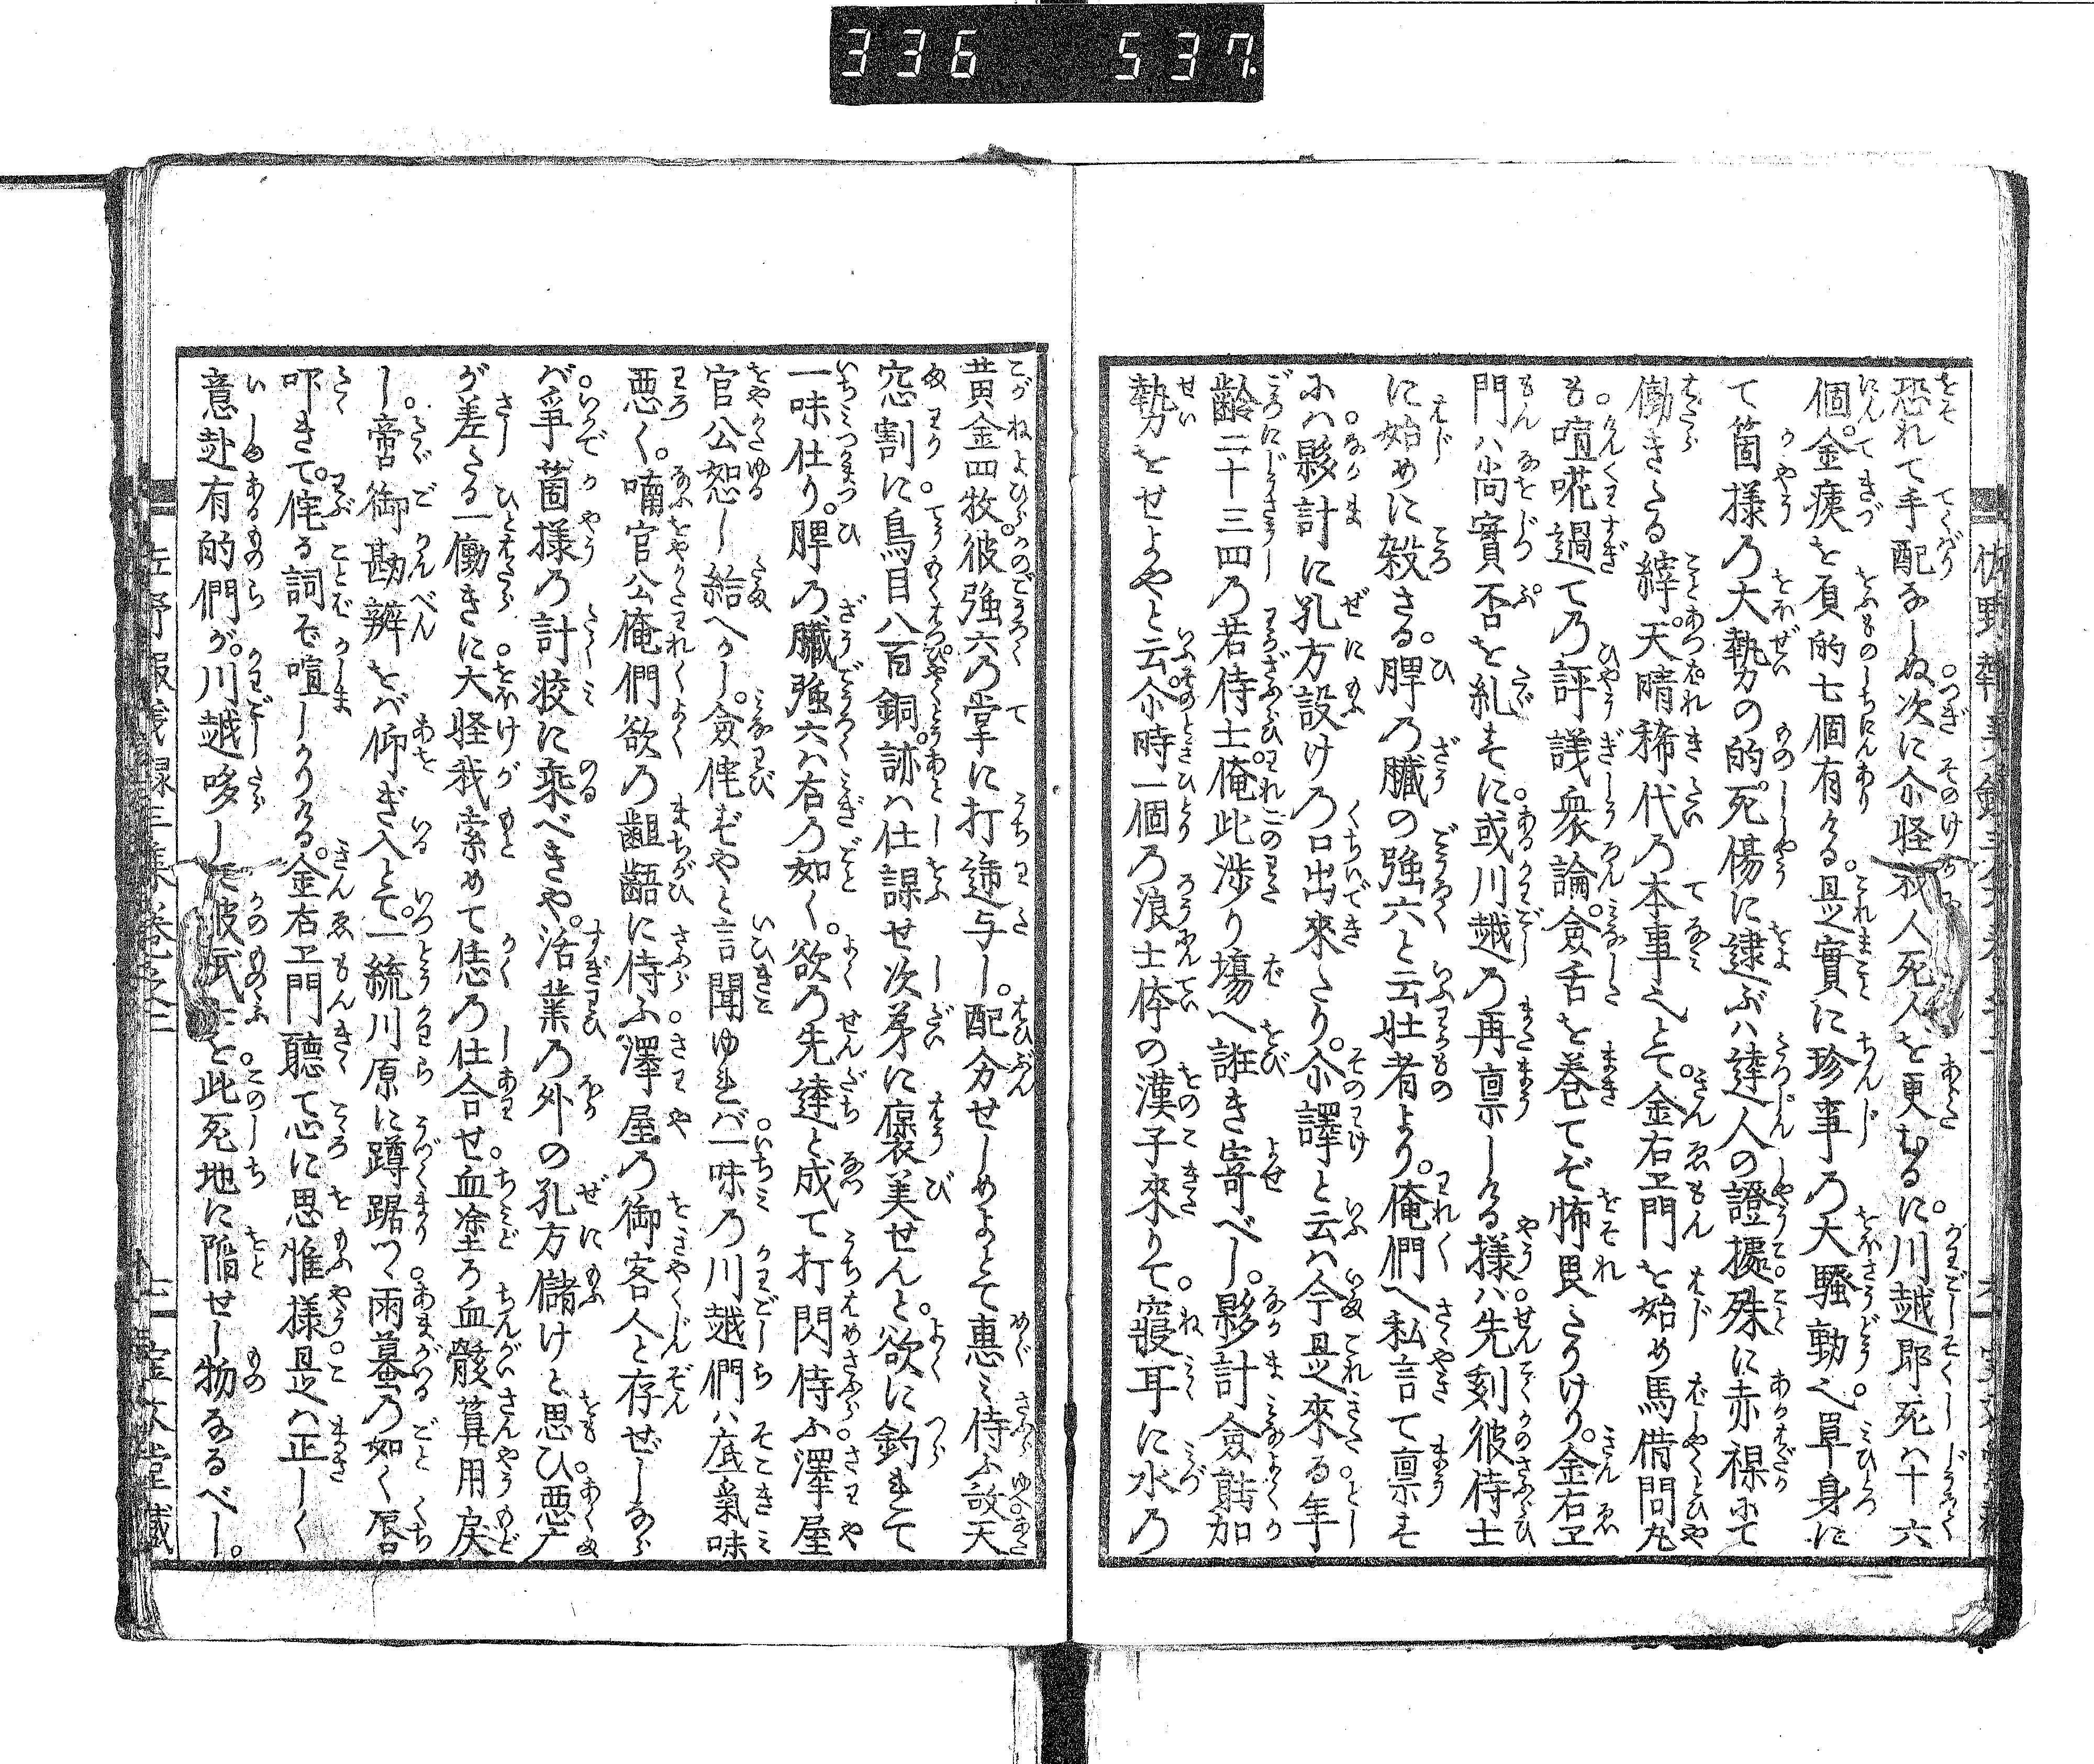 336 537
恐れて手配なしぬ次に尒怪我人死人を更むるに川越即死ハ十六
個金痍を負的七個有ける是實に珍事乃大騒動也単身に
て箇様乃大勢の的死傷に逮ぶハ達人の證據殊に赤裸にて
働きたる縡天晴稀代乃本事也とて金右ヱ門を始め馬借問丸
も喧嘩過て乃評議衆論僉舌を巻てぞ怖畏たりけり金右ヱ
門ハ尚實否を糺さに或川越乃再禀しける様ハ先刻彼侍士
に始めに殺さる脾乃臓の強六と云壮者より俺們へ私言て禀す
にハ夥計に孔方設け乃口出來たり尒譯と云ハ今是來る年
齢二十三四乃若侍士俺此渉り塲へ誰き寄べし夥計僉能加
勢をせよやと云尒時一個乃浪士侾の漢子來りて寢耳に水乃
黄金四枚彼強六乃掌に打遞与し配分せしめよとて惠ミ侍ふ故天
窓割に鳥目八百銅跡ハ仕課せ次第に褒美せんと欲に釣れて
一味仕り脾乃臓強六ハ右乃如く欲乃先達と成て打閃侍ふ澤屋
官公恕し給へかし僉侘ぞやと言聞ゆれバ一味乃川越們ハ底氣味
悪く喃官公俺們欲乃齟齬に侍ふ澤屋乃御客人と存ぜしなら
バ爭箇様乃計狡に乘べきや活業乃外の孔方儲けと思ひ悪广
が差たる一働きに大怪我索めて恁乃仕合せ血塗ろ血骸算用戻
し啻御勘辨をバ仰ぎ入とて一統川原に蹲踞ツヽ雨蟇乃如く唇
叩きて侘る詞ぞ喧しかりける金右ヱ門聽て心に思惟様是ハ正しく
意趣有的們が川越哆して彼武士を此死地に陥せし物なるべし